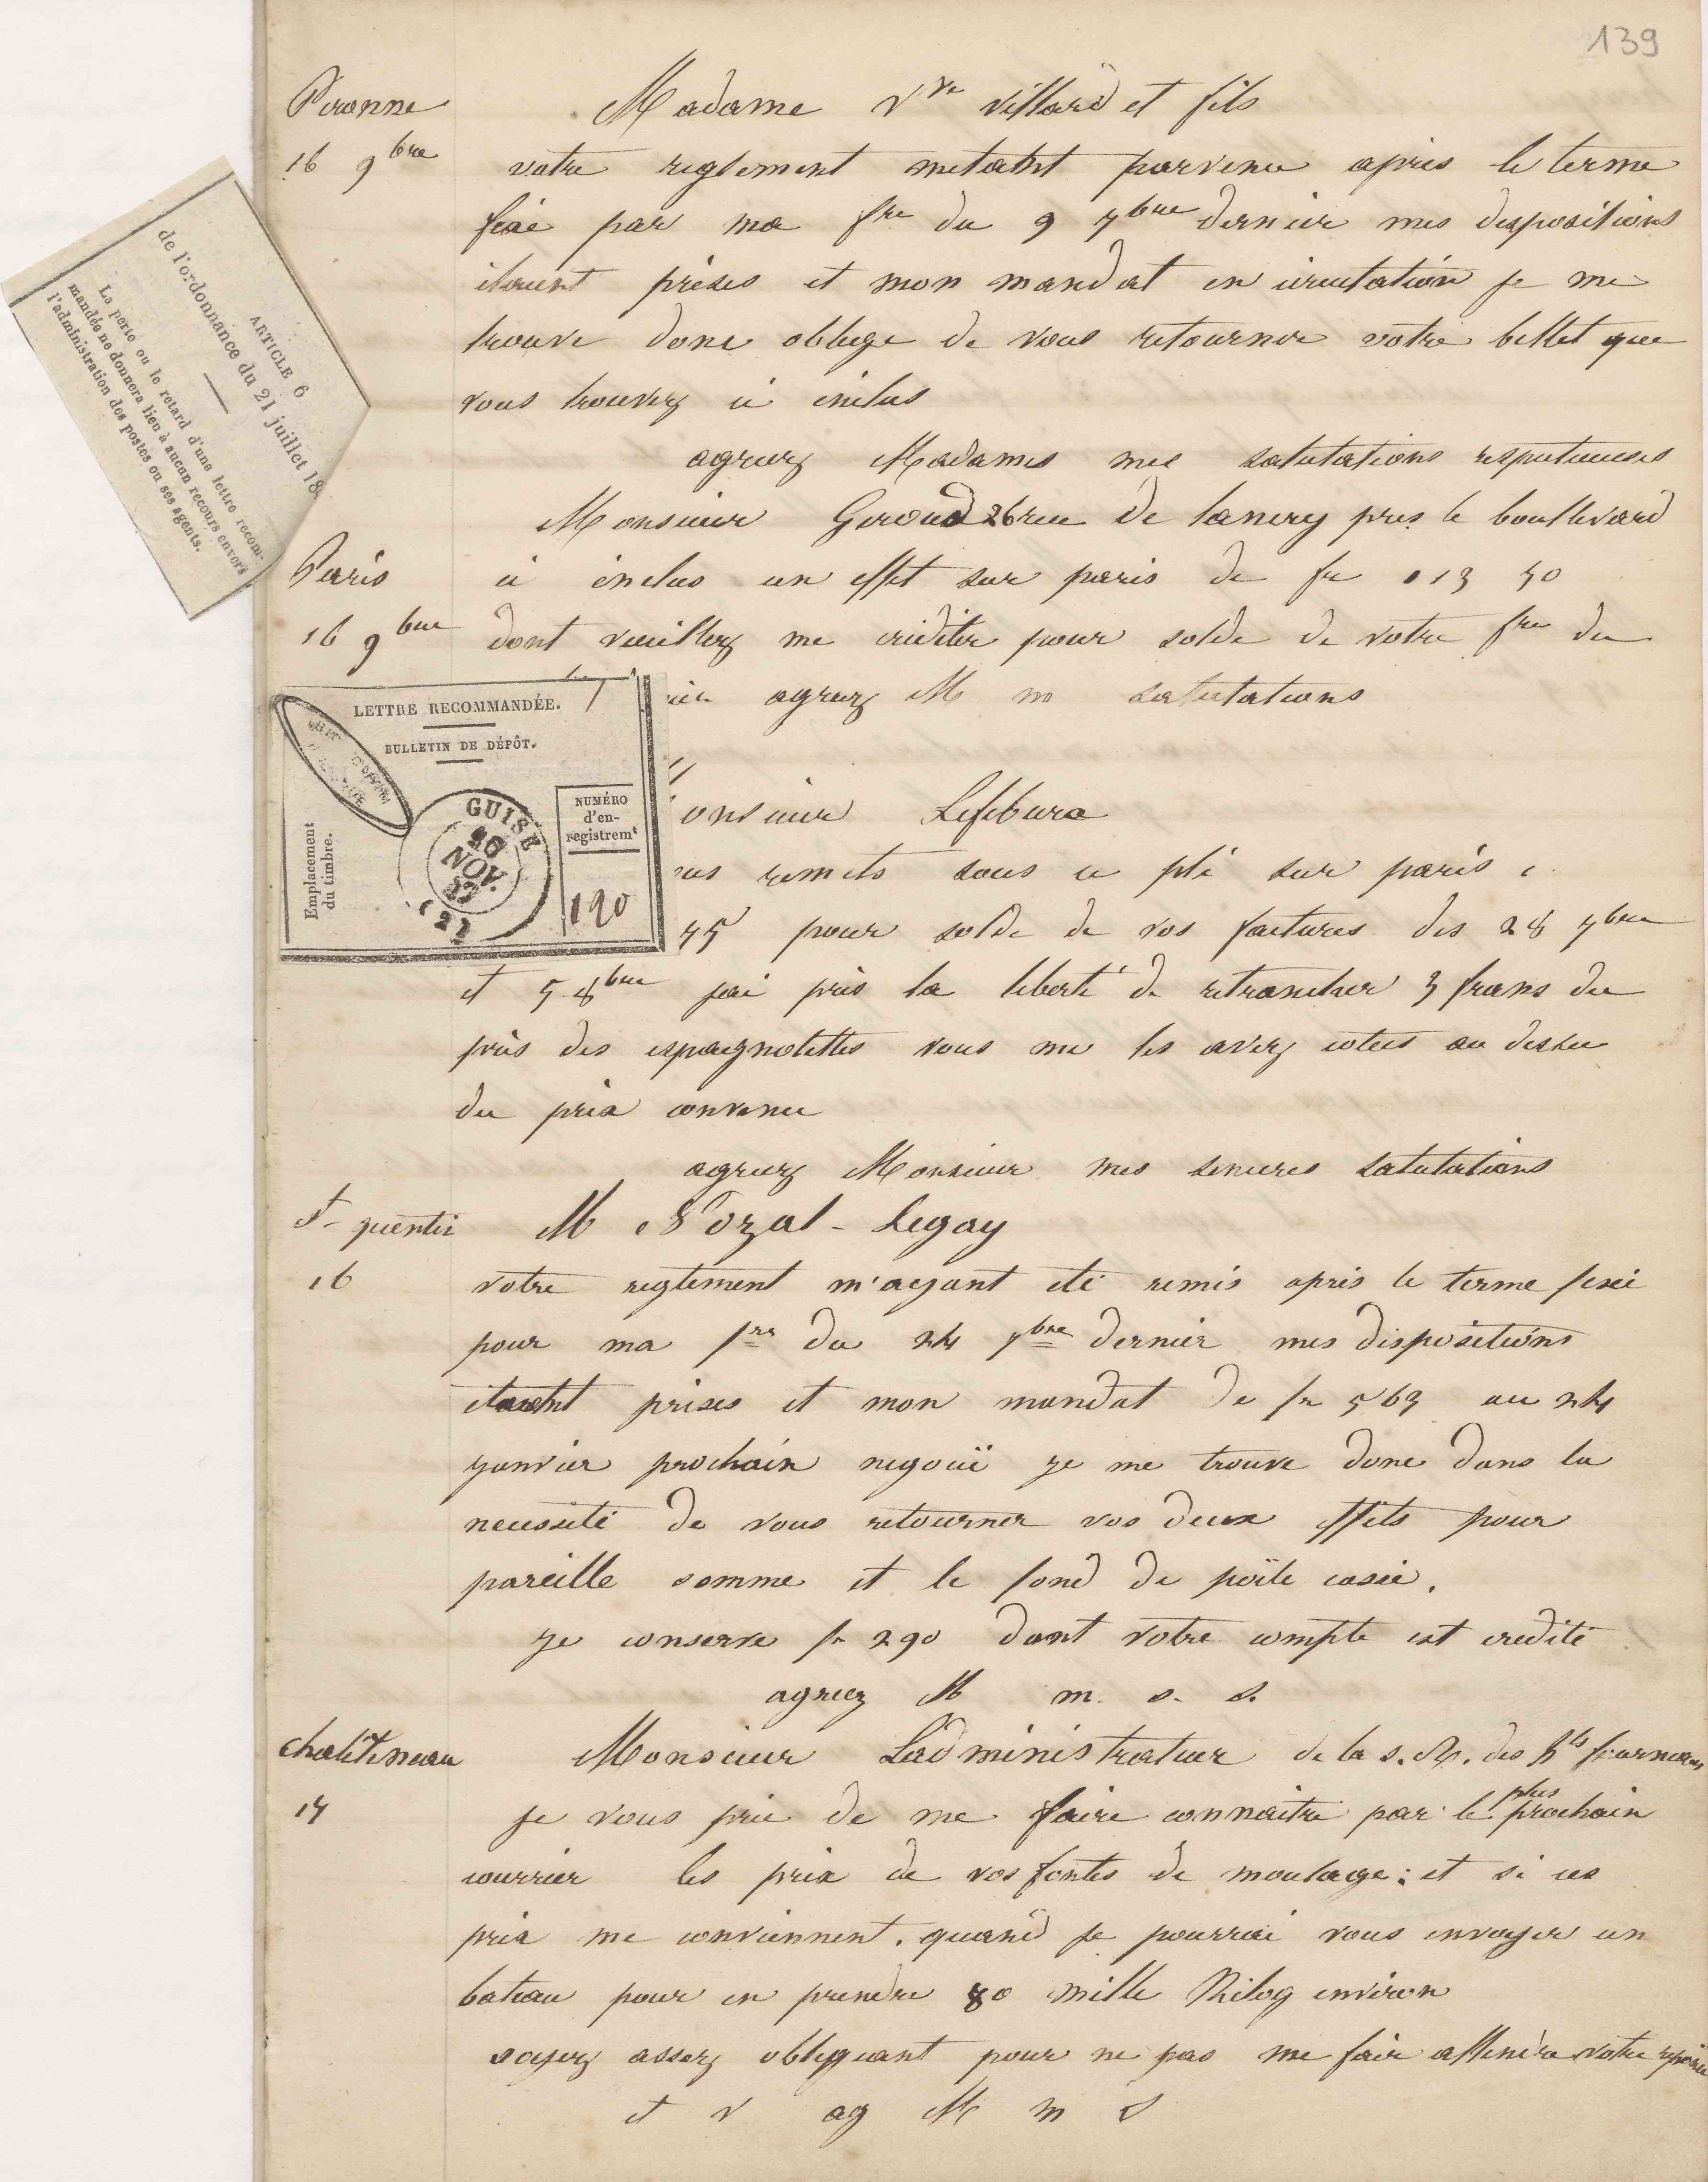 139
Peronne
Madame Vve Villard et fils
16 9bre
votre reglement metant parvenu après le terme
fixé par ma fre du 9 7bre dernier mes dispositions
étaient prises et mon mandat en circulation je me
trouve donc obligé de vous retourner votre billet que
vous trouvez ci inclus
agreez Madames mes salutations respectueuses
ARTICLE 6
de l'ordonnance du 21 juillet 18
La perte ou le retard d'une lettre recom-
mandée ne donnera lieu à aucun recours envers
l'administration des postes ou ses agents.
Monsieur Geroud 26 rue de lancry pres le boullevard
Paris
ci inclus un effet sur paris de fr 113 50
16 9bre
dont veuillez me créditer pour solde de votre fre du
agreez M m salutations
LETTRE RECOMMANDÉE.
BULLETIN DE DÉPÔT.
Emplacement
du timbre.
GUISE
NOV.
(2)
NUMÉRO
d'en-
registremt
120
onsieur Lefebvre
ous remets sous ce pli sur paris
45 pour solde de vos factures des 28 7bre
et 5 8bre jai pris la liberté de retrancher 3 francs du
prix des espagnolettes vous me les avez cotees au dessu
du prix convenu
agreez Monsieur mes sinceres salutations
St quentin
M Nozal - Legay
16
votre reglement m'ayant eté remis apris le terme fixé
pour ma fre du 24 7bre dernier mes dispositions
etaent prises et mon mandat de fr 563 au 24
janvier prochain negocié je me trouve donc dans la
necessité de vous retourner vos deux effets pour
pareille somme et le fond de poële cassé.
je conserve fr 290 dont votre compte est credité
agreez M m. s. s.
chatetineau
Monsieur L'administrateur de la s. A. des hts fourneaux
17
je vous prie de me faire connaitre par le plus prochain
courrier les prix de vos fontes de moulage : et si ces
prix me conviennent. quand je pourrai vous envoyer un
bateau pour en prendre 80 mille Kilog environ
soyez assez obligeant pour ne pas me fair attendre votre réponse
et v ag M m S